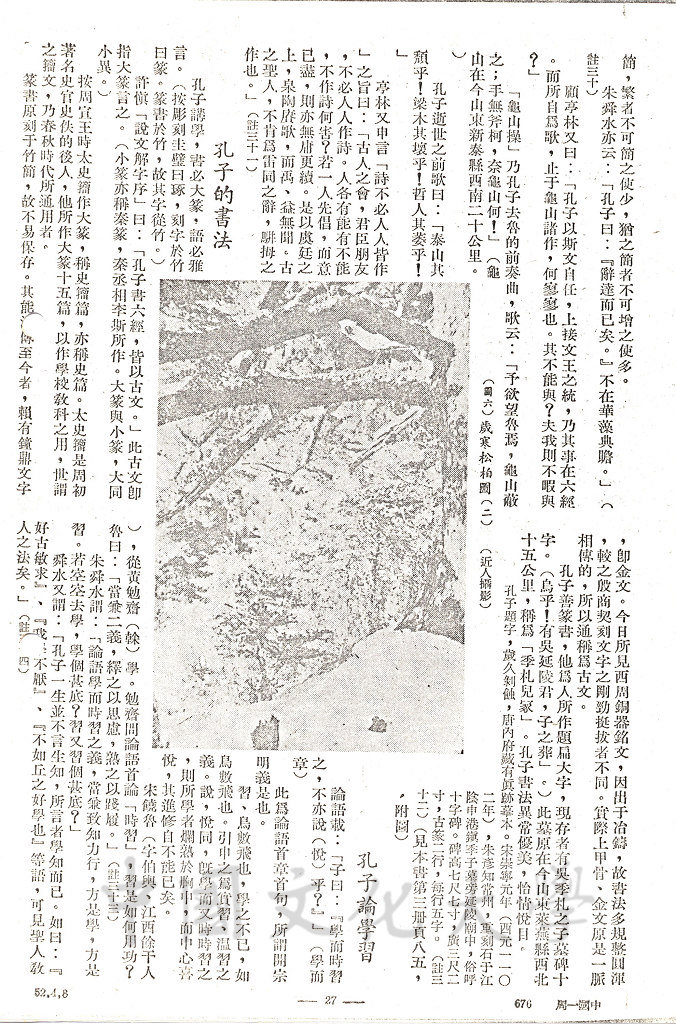 簡，繁者不可簡之使少，猶之簡者不可增之使多。
朱舜水亦云：「孔子曰：『辭達而已矣。』不在華藻典贍。」（
註三十）
顧亭林又曰：「孔子以斯文自任，上接文王之統，乃其事在六經
。而所自為歌，止于龜山諸作，何寥寥也。其不能與？夫我則不暇與
？」
「龜山操」乃孔子去魯的前奏曲，歌云：「予欲望魯焉，龜山蔽
之；手無斧柯，奈龜山何！」（龜
山在今山東新泰縣西南二十公里。
）
孔子逝世之前歌曰：「泰山其
頹乎！梁木其壞乎！哲人其萎乎！
」
亭林又申言「詩不必人人皆作
」之旨曰：「古人之會，君臣朋友
，不必人人作詩。人各有能有不能
，不作詩何害？若一人先倡，而意
已盡，則亦無庸更續。是以虞廷之
上，皋陶賡歌，而禹、益無聞。古
之聖人，不肯為雷同之辭，駢拇之
作也。」（註三十一）
孔子的書法
孔子講學，書必大篆，語必雅
言。（按彫刻圭璧曰琢，刻字於竹
曰篆。篆書於竹，故其字從竹。）
許慎「說文解字序」曰：「孔子書六經，皆以古文。」此古文卽
指大篆言之。（小篆亦稱秦篆，秦丞相李斯所作。大篆與小篆，大同
小異。）
按周宣王時太史籀作大篆，稱史籀篇，亦稱史篇。太史籀是周初
著名史官史佚的後人，他所作大篆十五篇，以作學校教科之用，世謂
之籀文，乃春秋時代所通用者。
篆書原刻于竹簡，故不易保存。其能流傳至今者，賴有鐘鼎文字
（圖六）歲寒松柏圖（二）　（近人攝影）
，卽金文。今日所見西周銅器銘文，因出于冶鑄，故書法多規整圓渾
，較之殷商契刻文字之剛勁挺拔者不同。實際上甲骨、金文原是一脈
相傳的，所以通稱爲古文。
孔子善篆書，他爲人所作題扁大字，現存者有吳季札之子墓碑十
字。（烏乎！有吳延陵君，子之葬」。）此墓原在今山東萊蕪縣西北
十五公里，稱爲「季札兒冢」。孔子書法異常優美，怡情悅目。
孔子題字，歲久剝蝕，唐內府藏有眞跡摹本。宋崇寧元年（西元一一〇
二年），朱彥知常州，重刻石于江
陰申港鎭季子墓旁延陵廟中，俗呼
十字碑。碑高七尺七寸，廣三尺二
寸，古篆二行，每行五字。（註三
十二）（見本書第三册頁八五，
，附圖）
孔子論學習
論語載：「子曰：『學而時習
之，不亦說（悅）乎？』」（學而
章）
此爲論語首章首句，所謂開宗
明義是也。
習、鳥數飛也，學之不已，如
鳥數飛也。引申之爲實習、溫習之
義。說，悅同，旣學而又時時習之
，則所學者爛熟於胸中，而中心喜
悅，其進修自不能已矣。
宋饒魯（字伯輿，江西餘干人
），從黃勉齋（榦）學。勉齋問論語首論「時習」，習是如何用功？
魯曰：「當兼二義，繹之以思慮，熟之以踐履。」（註三十三）
朱舜水謂：「論語學而時習之義，當兼致知力行，方是學，方是
習。若空空去學，學個甚底？習又習個甚底？」
舜水又謂：「孔子一生並不言生知，所言者學知而已。如曰：『
好古敏求』、『我學不厭』、『不如丘之好學也』等語，可見聖人敎
人之法矣。」（註三十四）
中國文化大學
52.4.8
— 27 —
676
中國一周